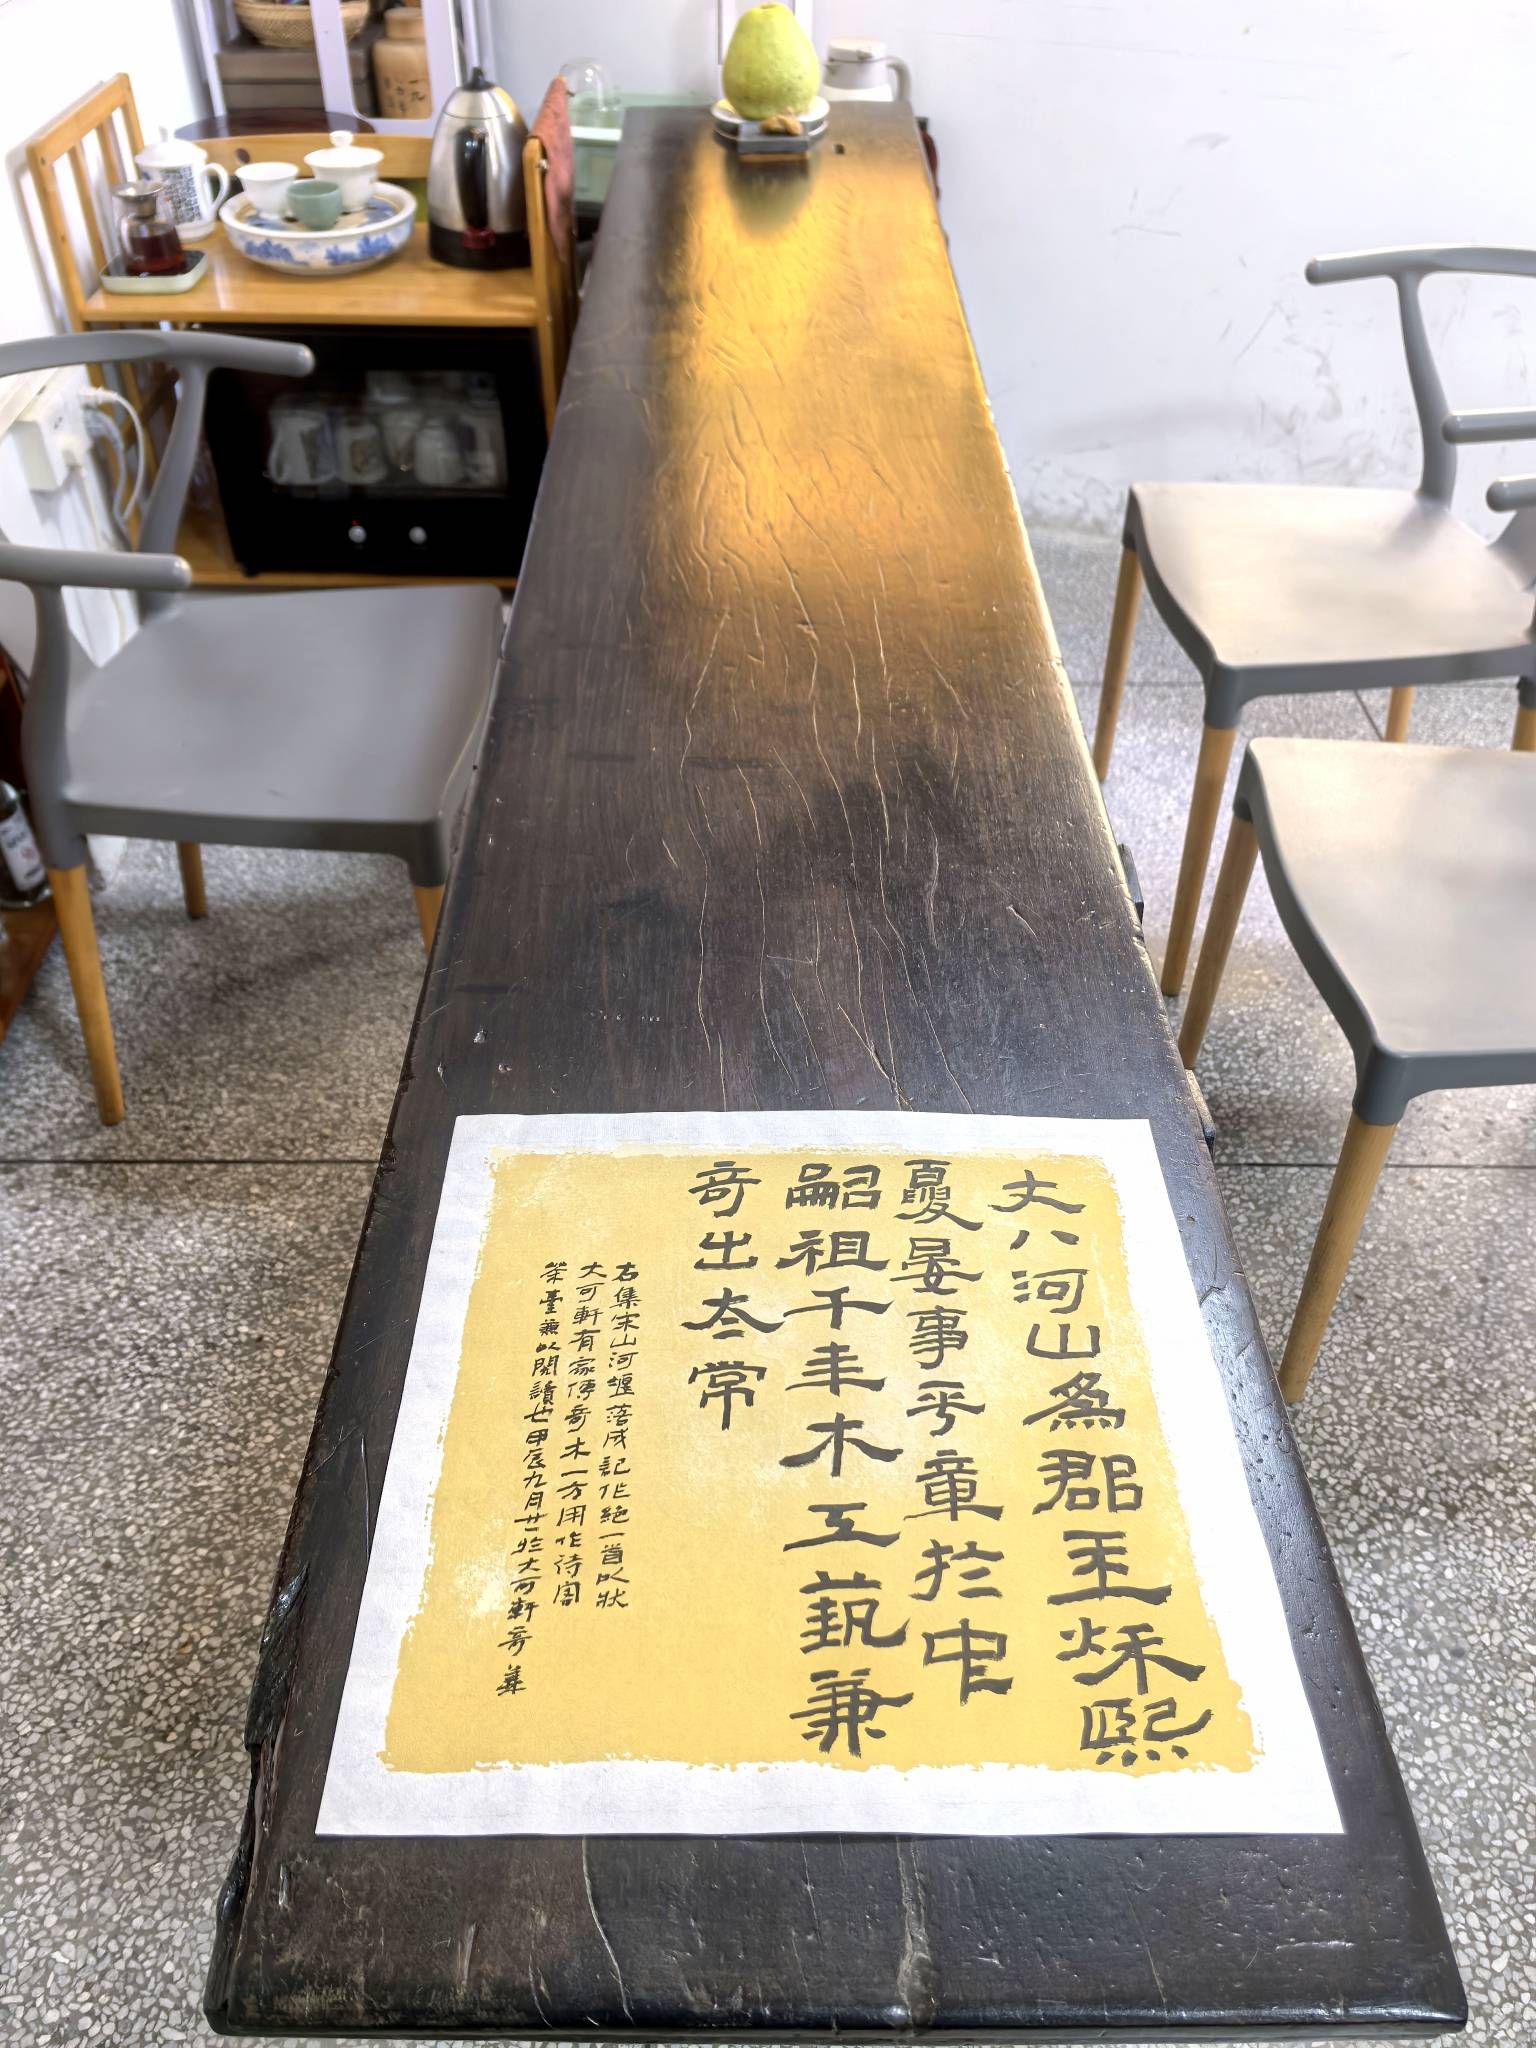 丈八河山為郡王秌熙
夏晏事平章於中
嗣祖千年木工藝兼
奇出太常
右集宋山河堰落成記作絕一首以狀
大可軒有家傳奇木一方用作待客
茶臺兼以閱讀也甲辰九月廿一於大可軒